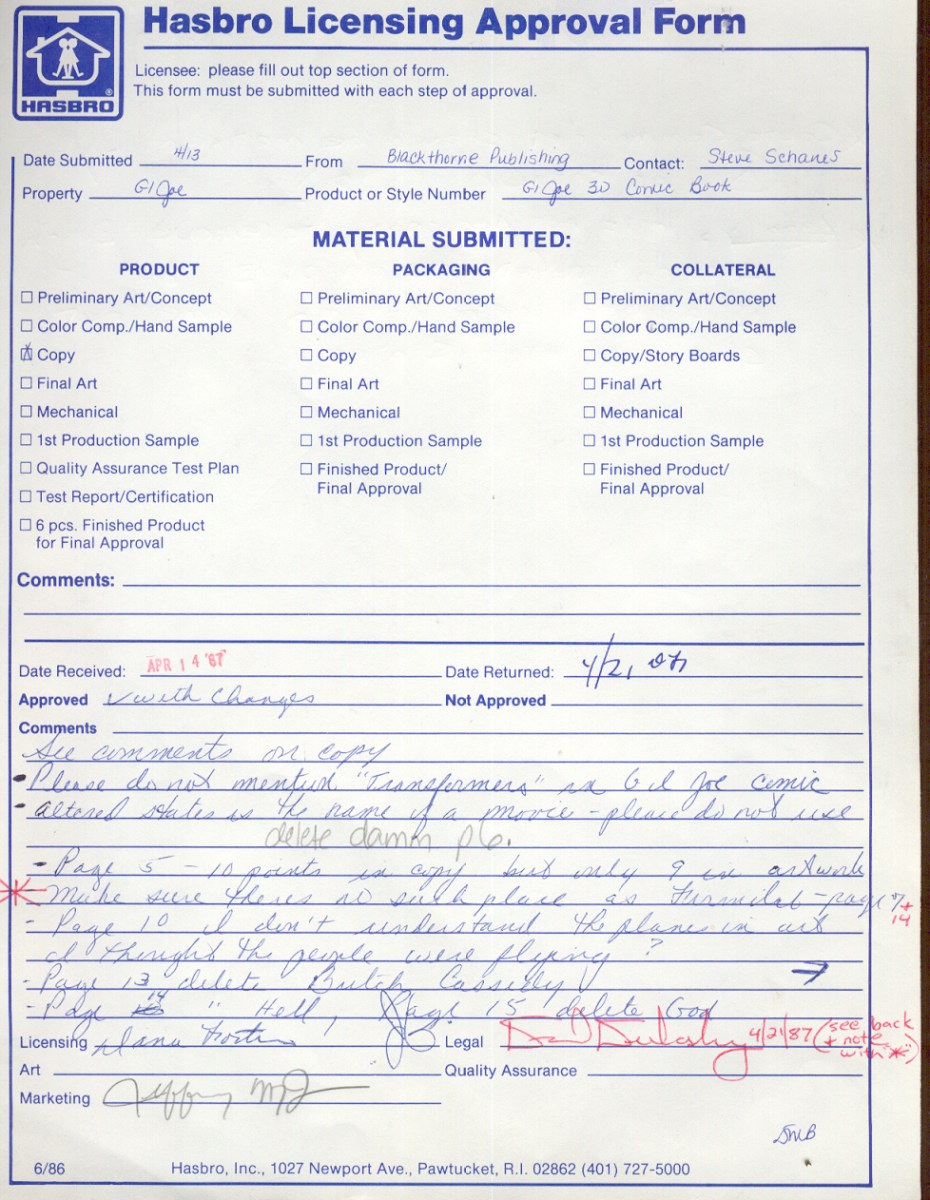 HASBRO ®
Hasbro Licensing Approval Form
Licensee: please fill out top section of form.
This form must be submitted with each step of approval.
Date Submitted 4/13 From Blackthorne Publishing Contact: Steve Schanes
Property GI Joe Product or Style Number GI Joe 3D Comic Book
MATERIAL SUBMITTED:
PRODUCT
☐ Preliminary Art/Concept
☐ Color Comp./Hand Sample
☒ Copy
☐ Final Art
☐ Mechanical
☐ 1st Production Sample
☐ Quality Assurance Test Plan
☐ Test Report/Certification
☐ 6 pcs. Finished Product
for Final Approval
PACKAGING
☐ Preliminary Art/Concept
☐ Color Comp./Hand Sample
☐ Copy
☐ Final Art
☐ Mechanical
☐ 1st Production Sample
☐ Finished Product/
Final Approval
COLLATERAL
☐ Preliminary Art/Concept
☐ Color Comp./Hand Sample
☐ Copy/Story Boards
☐ Final Art
☐ Mechanical
☐ 1st Production Sample
☐ Finished Product/
Final Approval
Comments:
Date Received: APR 14 '87 Date Returned: 4/21
Approved ✓ with Changes Not Approved
Comments
See comments on copy
- Please do not mention "Transformers" in G I Joe Comic
- altered states is the name of a movie - please do not use
delete damn p 6.
- Page 5 - 10 points in copy but only 9 in artwork
* - Make sure theres no such place as - page 7 + 14
- Page 10 I don't understand the planes in art
I thought the people were flying?
- Page 13 delete Butch Cassidy →
- Page 14 " Hell, Page 15 delete God
Licensing Dana Legal 4/21/87 (see back + note with "*")
Art Quality Assurance
Marketing Jeffrey
6/86 Hasbro, Inc., 1027 Newport Ave., Pawtucket, R.I. 02862 (401) 727-5000